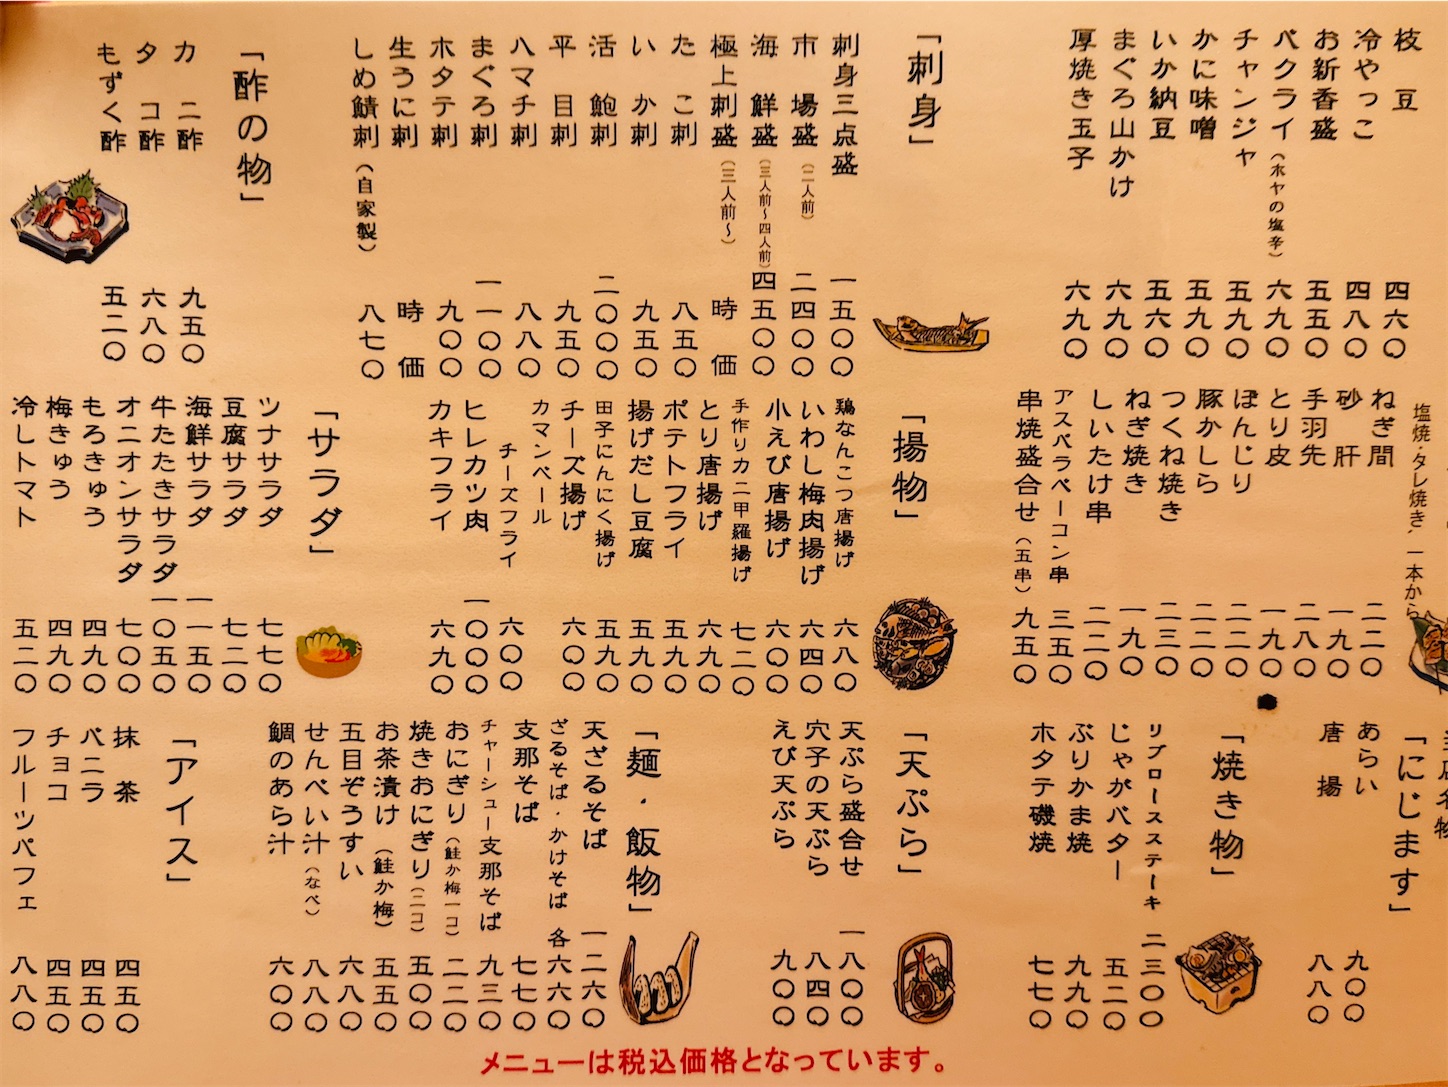 枝豆 四六〇
冷やっこ 四八〇
お新香盛 五五〇
バクライ（ホヤの塩辛） 六九〇
チャンジャ 五九〇
かに味噌 五九〇
いか納豆 五六〇
まぐろ山かけ 六九〇
厚焼き玉子 六九〇
「刺身」
刺身三点盛 一五〇〇
市場盛（二人前） 二四〇〇
海鮮盛（三人前～四人前） 四五〇〇
極上刺盛（三人前～） 時価
たこ刺 八五〇
いか刺 九五〇
活鮑刺 二〇〇〇
平目刺 九五〇
ハマチ刺 八八〇
まぐろ刺 一一〇〇
ホタテ刺 九〇〇
生うに刺 時価
しめ鯖刺（自家製） 八七〇
「酢の物」
カニ酢 九五〇
タコ酢 六八〇
もずく酢 五二〇
塩焼・タレ焼き、一本から
ねぎ間 二二〇
砂肝 一九〇
手羽先 二八〇
とり皮 一九〇
ぼんじり 二二〇
豚かしら 二二〇
つくね焼き 二三〇
ねぎ焼き 一九〇
しいたけ串 二二〇
アスパラベーコン串 三五〇
串焼盛合せ（五串） 九五〇
「揚物」
鶏なんこつ唐揚げ 六八〇
いわし梅肉揚げ 六四〇
小えび唐揚げ 六〇〇
手作りカニ甲羅揚げ 七二〇
とり唐揚げ 六九〇
ポテトフライ 五九〇
揚げだし豆腐 五九〇
田子にんにく揚げ 五九〇
チーズ揚げ 六〇〇
カマンベール
チーズフライ 六〇〇
ヒレカツ肉 一〇〇〇
カキフライ 六九〇
「サラダ」
ツナサラダ 七七〇
豆腐サラダ 七二〇
海鮮サラダ 一一五〇
牛たたきサラダ 一〇五〇
オニオンサラダ 七〇〇
もろきゅう 四九〇
梅きゅう 四九〇
冷しトマト 五二〇
当店名物
「にじます」
あらい 九〇〇
唐揚 八八〇
「焼き物」
リブロースステーキ 二三〇〇
じゃがバター 五二〇
ぶりかま焼 九九〇
ホタテ磯焼 七七〇
「天ぷら」
天ぷら盛合せ 一八〇〇
穴子の天ぷら 八四〇
えび天ぷら 九〇〇
「麺・飯物」
天ざるそば 一二六〇
ざるそば・かけそば 各六六〇
支那そば 七七〇
チャーシュー支那そば 九三〇
おにぎり（鮭か梅一コ） 二二〇
焼きおにぎり（二コ） 五〇〇
お茶漬け（鮭か梅） 五五〇
五目ぞうすい 六八〇
せんべい汁（なべ） 八八〇
鯛のあら汁 六〇〇
「アイス」
抹茶 四五〇
バニラ 四五〇
チョコ 四五〇
フルーツパフェ 八八〇
メニューは税込価格となっています。